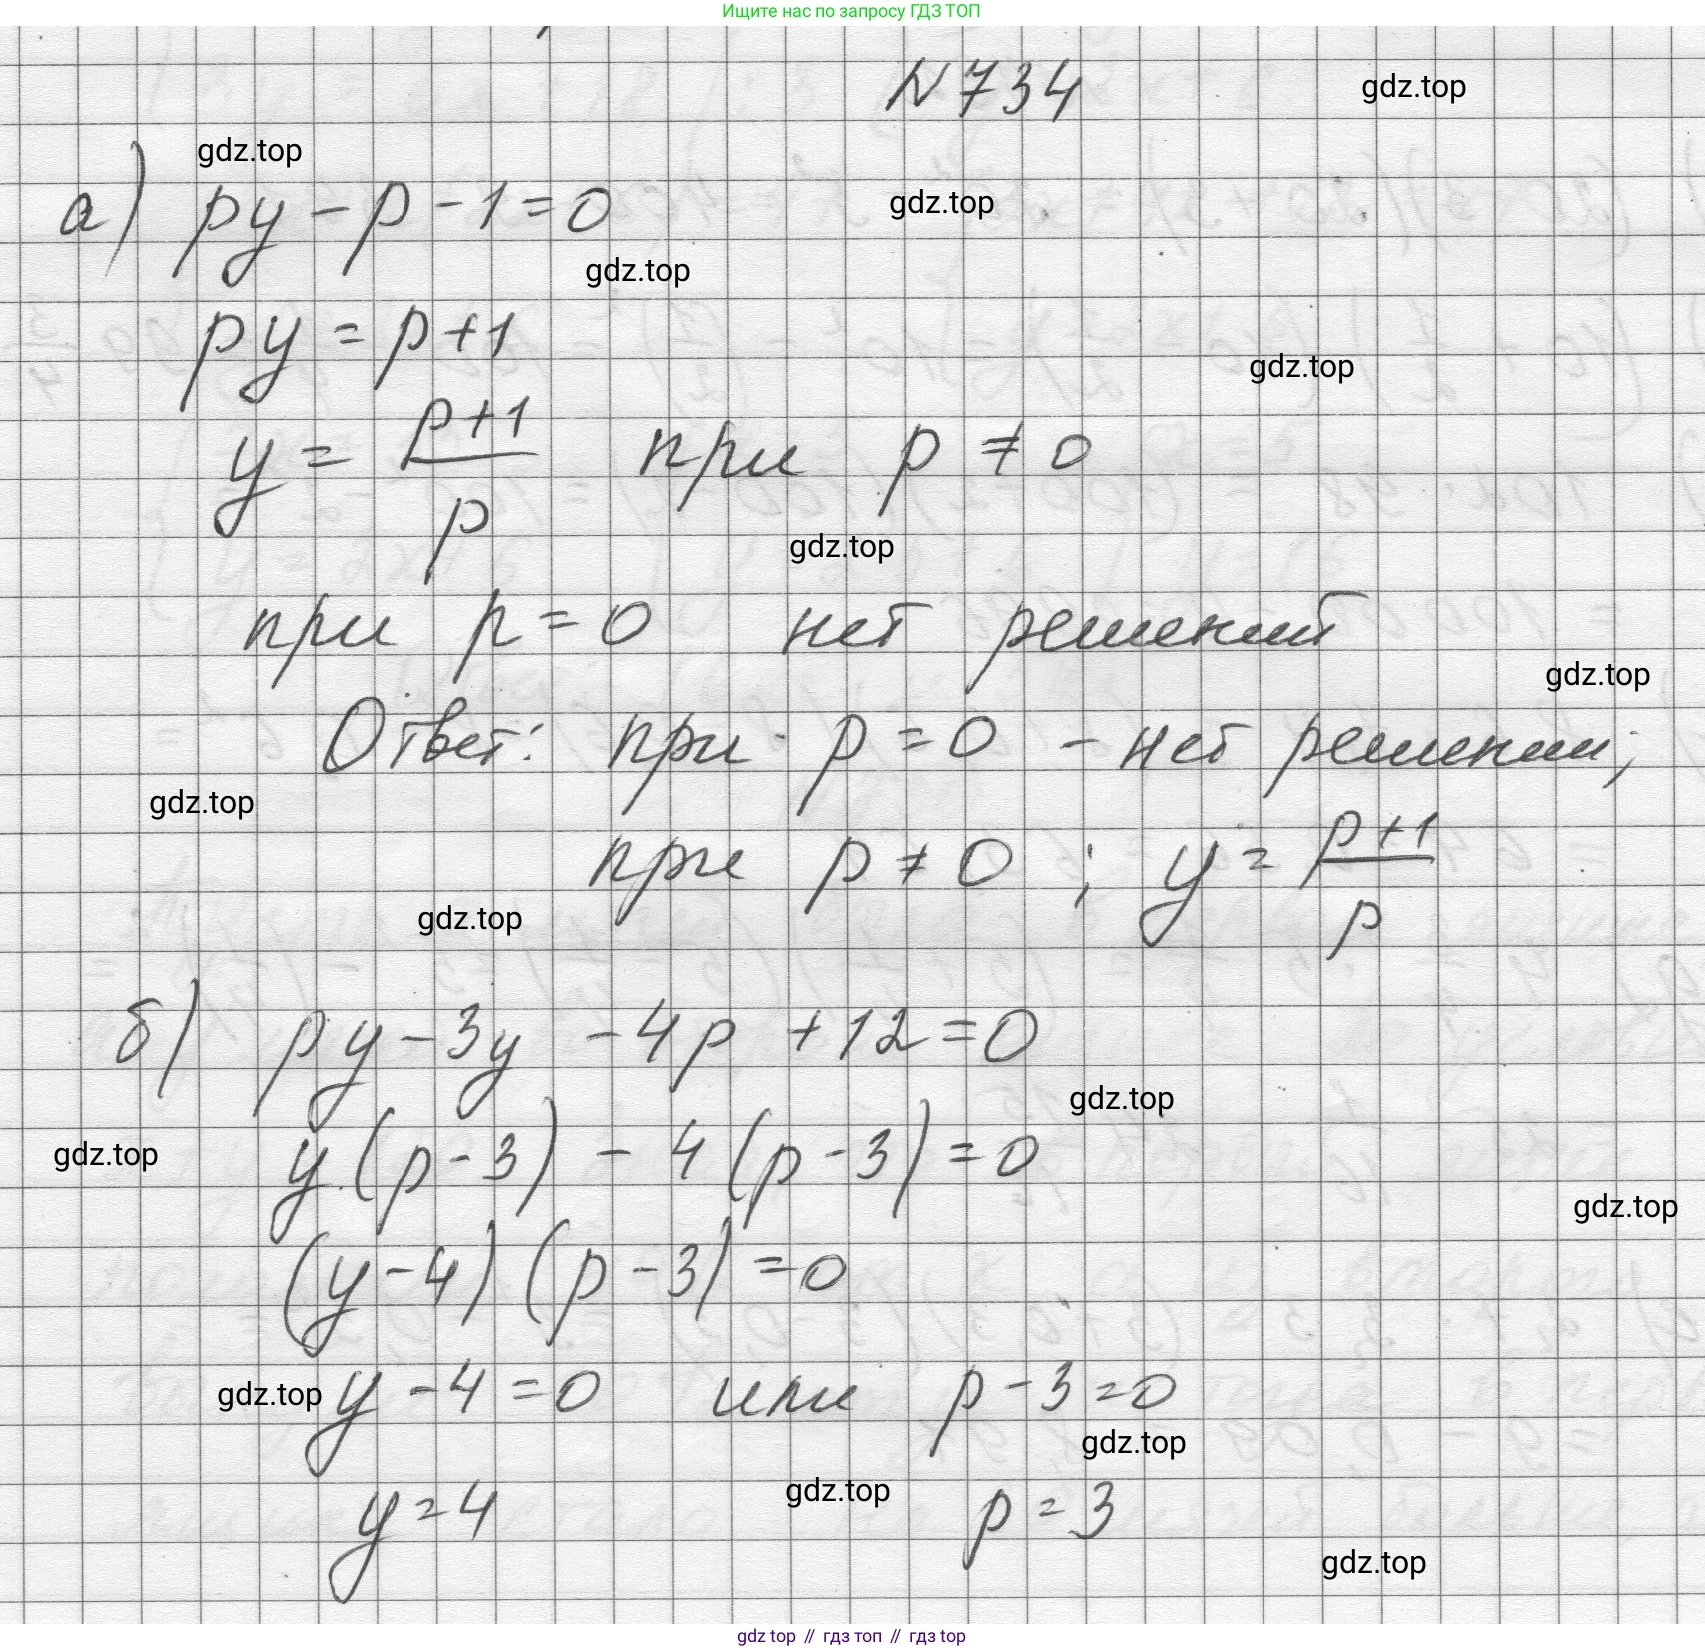 Ищите нас по запросу ГДЗ ТОП
N734
gdz.top
gdz.top
а) py - p - 1 = 0
gdz.top
gdz.top
py = p+1
gdz.top
y = \frac{p+1}{p} при p ≠ 0
gdz.top
при p = 0 нет решений
gdz.top
Ответ: при p = 0 - нет решений;
gdz.top
при p ≠ 0 ; y = \frac{p+1}{p}
gdz.top
б) py - 3y - 4p + 12 = 0
gdz.top
y·(p-3) - 4(p-3) = 0
gdz.top
gdz.top
(y-4)(p-3) = 0
y - 4 = 0 или p - 3 = 0
gdz.top
gdz.top
gdz.top
y = 4 p = 3
gdz.top
gdz top // гдз топ // gdz top